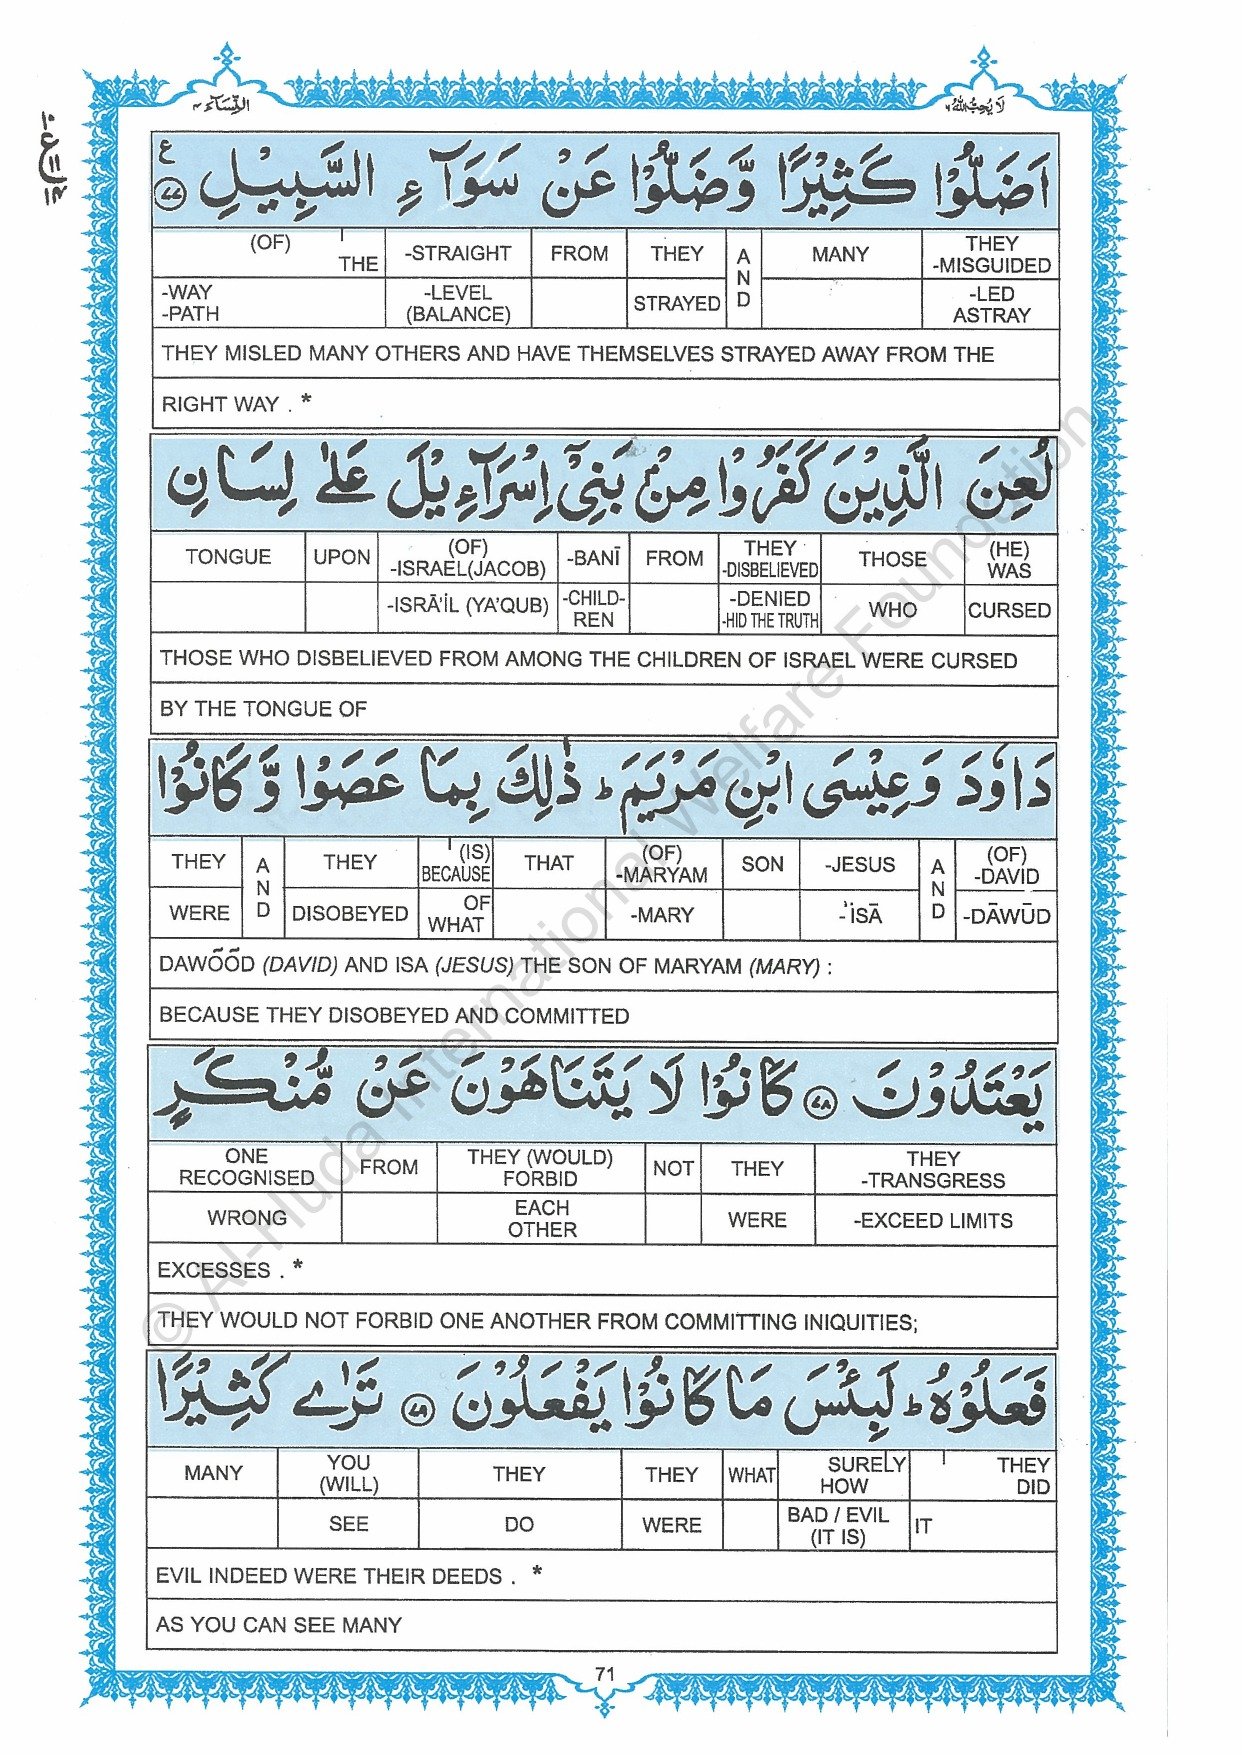 النِّسَآء ٤
لَا يُحِبُّ اللّٰهُ ٦
اَضَلُّوْا كَثِيْرًا وَّضَلُّوْا عَنْ سَوَآءِ السَّبِيْلِ ﴿٧٧﴾ ع
THEY MANY A THEY FROM -STRAIGHT (OF) THE
-MISGUIDED N
-LED ASTRAY D STRAYED -LEVEL (BALANCE) -WAY -PATH
THEY MISLED MANY OTHERS AND HAVE THEMSELVES STRAYED AWAY FROM THE
RIGHT WAY . *
لُعِنَ الَّذِيْنَ كَفَرُوْا مِنْۢ بَنِيْٓ اِسْرَآءِيْلَ عَلٰى لِسَانِ
TONGUE UPON (OF) -ISRAEL(JACOB) -BANĪ FROM THEY -DISBELIEVED THOSE (HE) WAS
-ISRĀ'İL (YA'QUB) -CHILD-REN -DENIED -HID THE TRUTH WHO CURSED
THOSE WHO DISBELIEVED FROM AMONG THE CHILDREN OF ISRAEL WERE CURSED
BY THE TONGUE OF
دَاوٗدَ وَعِيْسَى ابْنِ مَرْيَمَ ؕ ذٰلِكَ بِمَا عَصَوْا وَّكَانُوْا
THEY AND THEY (IS) BECAUSE THAT (OF) -MARYAM SON -JESUS AND (OF) -DAVID
WERE DISOBEYED OF WHAT -MARY -'İSĀ -DĀWŪD
DAWÕÕD (DAVID) AND ISA (JESUS) THE SON OF MARYAM (MARY) :
BECAUSE THEY DISOBEYED AND COMMITTED
يَعْتَدُوْنَ ﴿٧٨﴾ كَانُوْا لَا يَتَنَاهَوْنَ عَنْ مُّنْكَرٍ
ONE RECOGNISED FROM THEY (WOULD) FORBID NOT THEY THEY -TRANSGRESS
WRONG EACH OTHER WERE -EXCEED LIMITS
EXCESSES . *
THEY WOULD NOT FORBID ONE ANOTHER FROM COMMITTING INIQUITIES;
فَعَلُوْهُ ؕ لَبِئْسَ مَا كَانُوْا يَفْعَلُوْنَ ﴿٧٩﴾ تَرٰى كَثِيْرًا
MANY YOU (WILL) THEY THEY WHAT SURELY HOW THEY DID
SEE DO WERE BAD / EVIL (IT IS) IT
EVIL INDEED WERE THEIR DEEDS . *
AS YOU CAN SEE MANY
71
© Al-Huda International Welfare Foundation